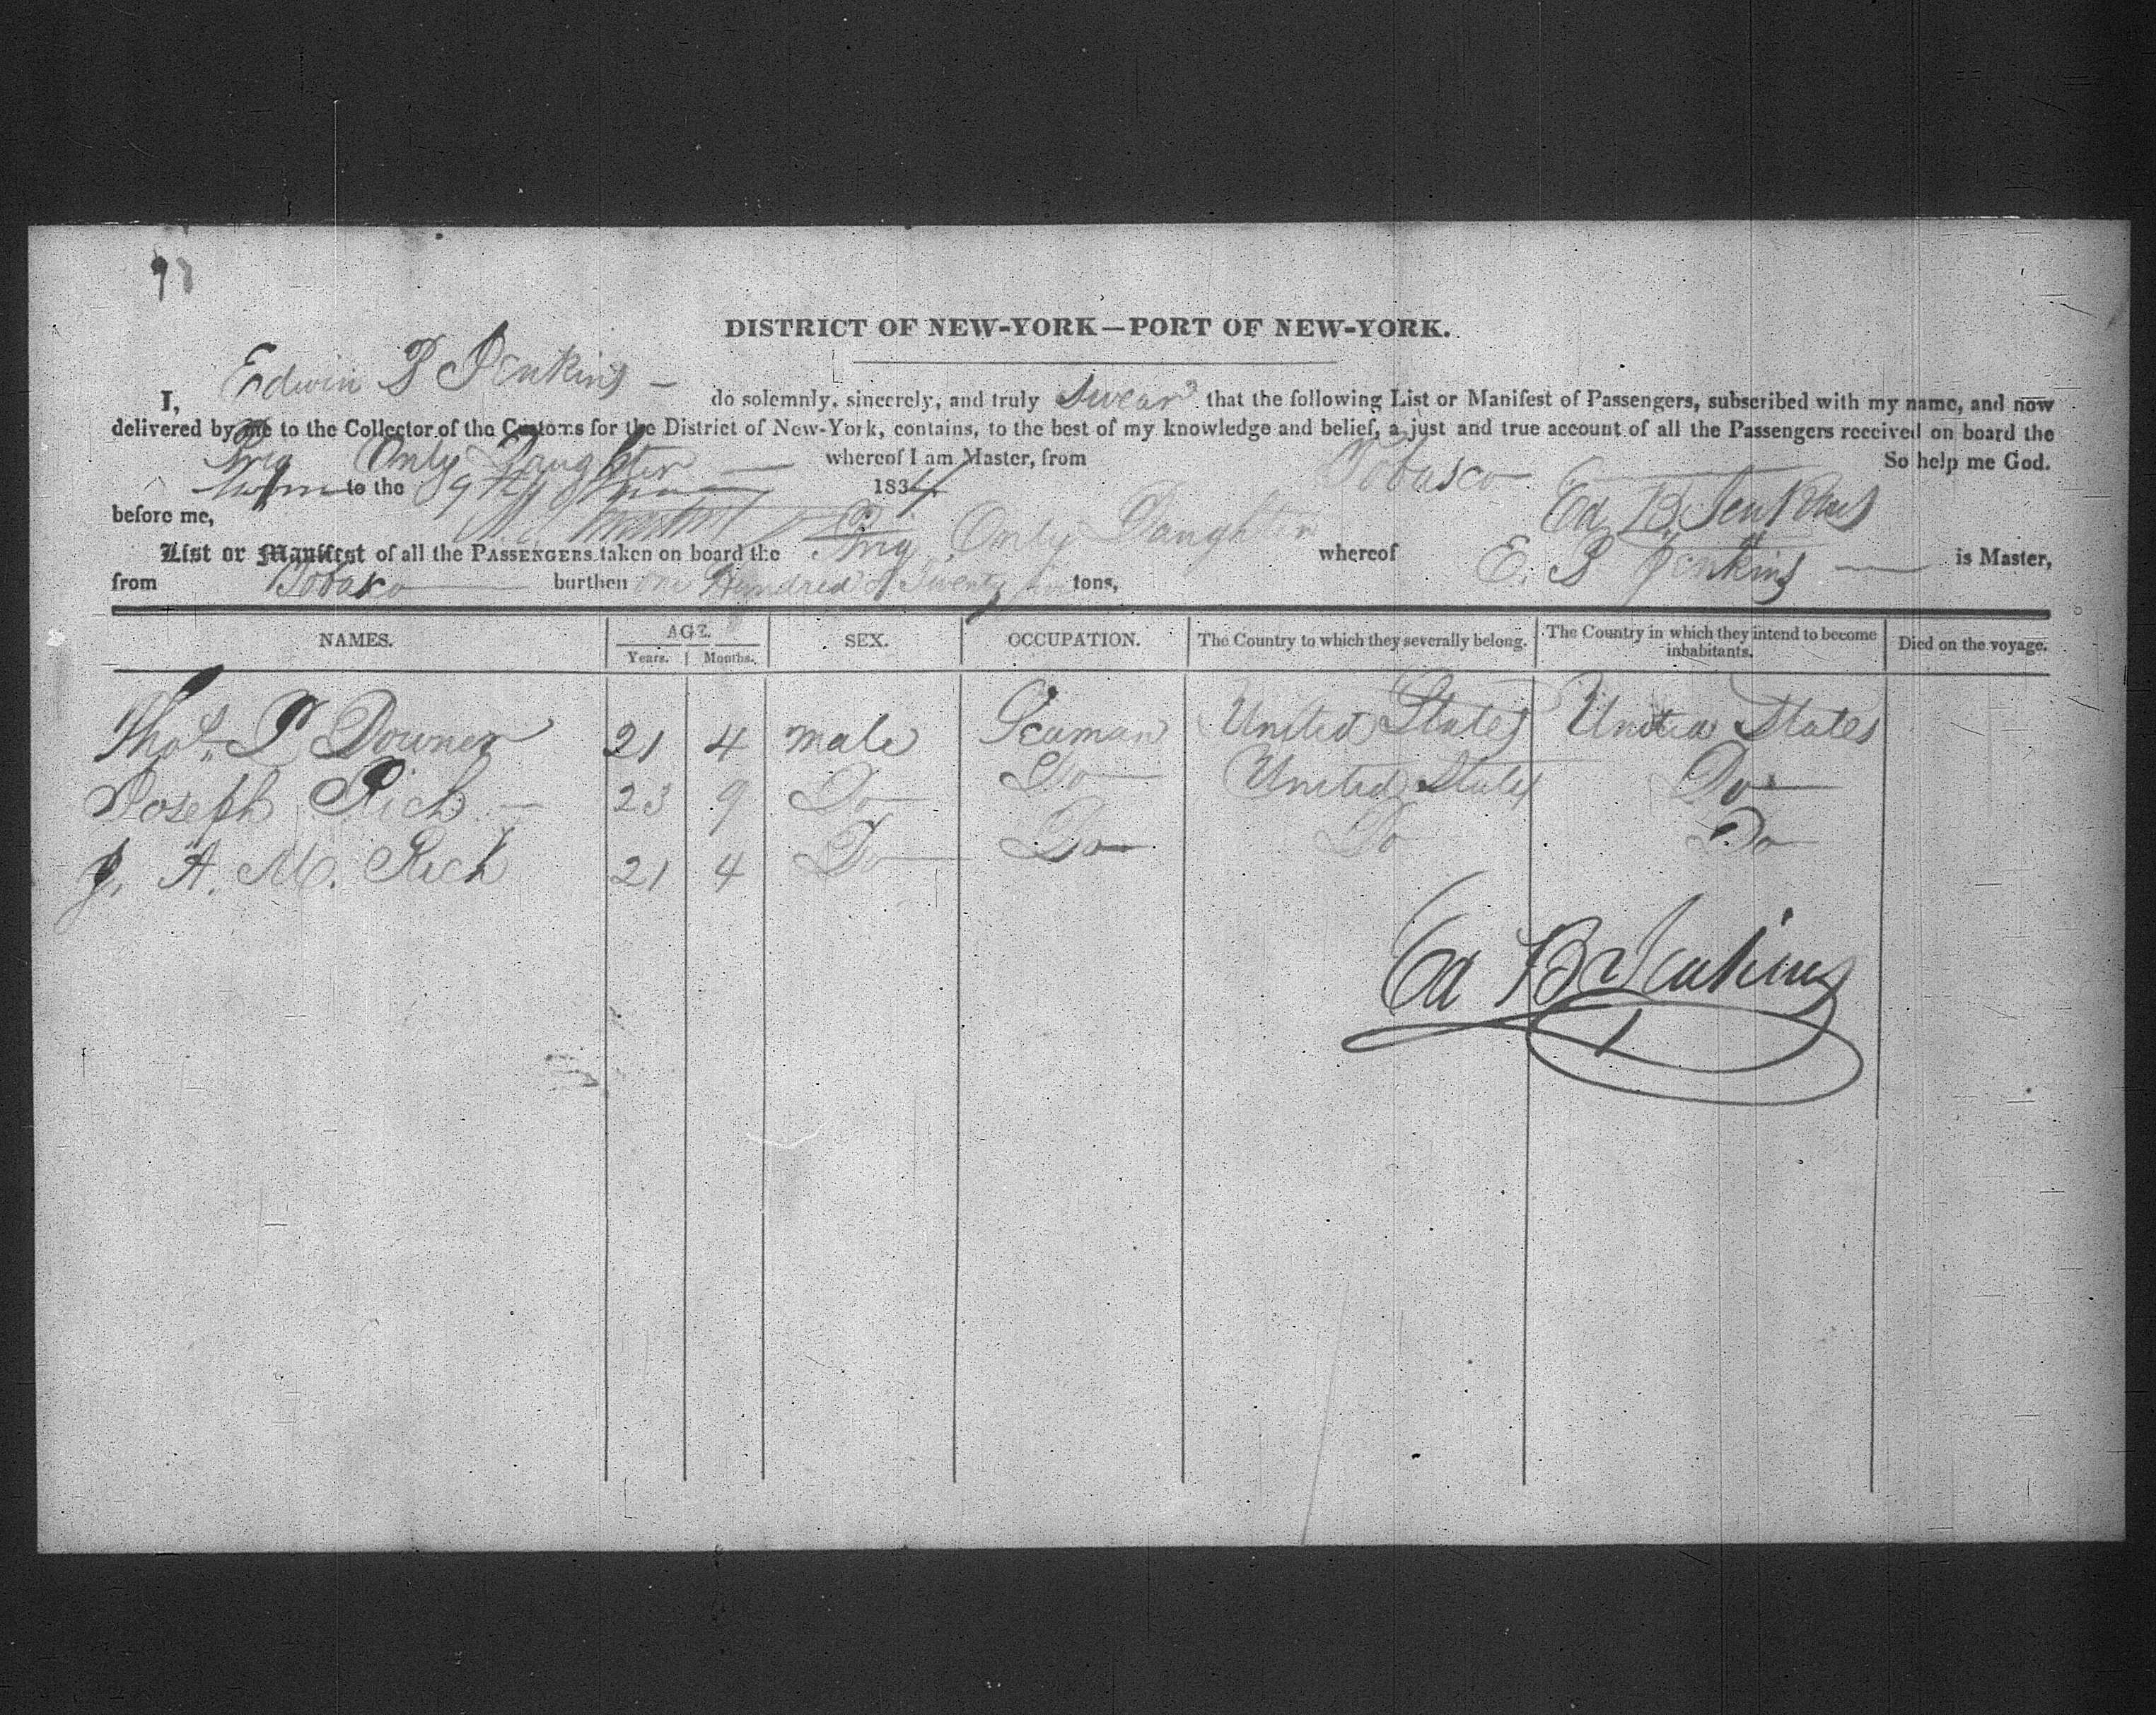 98
DISTRICT OF NEW-YORK—PORT OF NEW-YORK.
I, Edwin B Jenkins — do solemnly, sincerely, and truly swear that the following List or Manifest of Passengers, subscribed with my name, and now
delivered by me to the Collector of the Customs for the District of New-York, contains, to the best of my knowledge and belief, a just and true account of all the Passengers received on board the
Brig Only Daughter — whereof I am Master, from Tobasco So help me God.
to the 1834
before me, Ed B. Jenkins
List or Manifest of all the PASSENGERS taken on board the Brig Only Daughter whereof E. B Jenkins — is Master,
from Tobasco burthen One Hundred & Twenty tons,
NAMES. AGE. SEX. OCCUPATION. The Country to which they severally belong. The Country in which they intend to become inhabitants. Died on the voyage.
Years. Months.
Thos. P Downer 21 4 male Seaman United States United States
Joseph Rich — 23 9 Do Do United States Do
J. A. M. Rich 21 4 Do Do Do Do
Ed B Jenkins